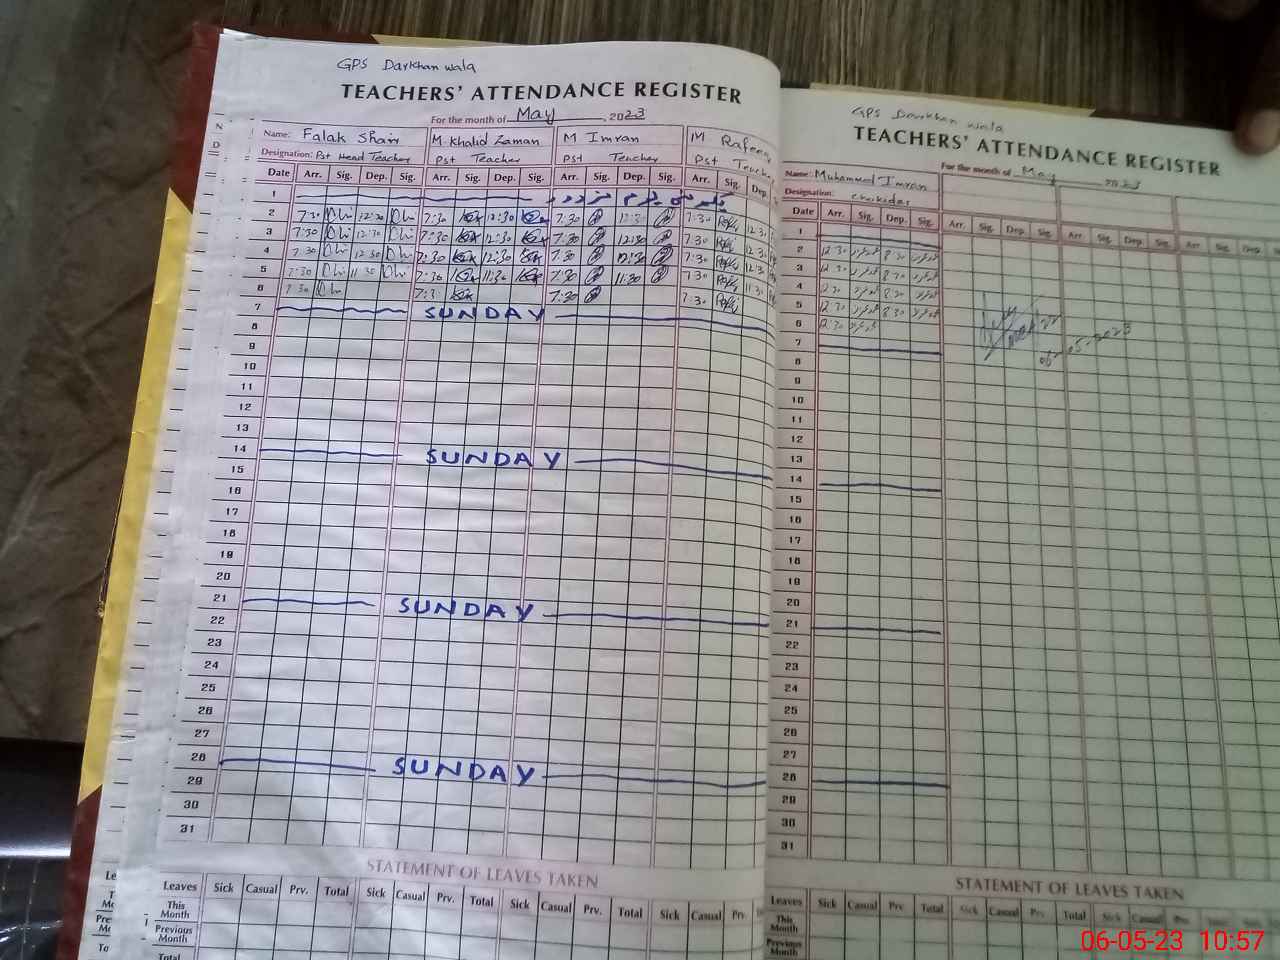 GPS Darkhan wala
TEACHERS' ATTENDANCE REGISTER
For the month of May, 2023
Name: Falak Shair M Khalid Zaman M Imran M Rafeeq
Designation: Pst Head Teacher Pst Teacher Pst Teacher Pst Teacher
Date Arr. Sig. Dep. Sig. Arr. Sig. Dep. Sig. Arr. Sig. Dep. Sig. Arr. Sig. Dep.
1
2 7:30 12:30 7:30 12:30 7:30 12:30 7:30 12:30
3 7:30 12:30 7:30 12:30 7:30 12:30 7:30 12:30
4 7:30 12:30 7:30 12:30 7:30 12:30 7:30 12:30
5 7:30 11:30 7:30 11:30 7:30 11:30 7:30 11:30
6 7:30 7:30 7:30 7:30
7 SUNDAY
8
9
10
11
12
13
14 SUNDAY
15
16
17
18
19
20
21 SUNDAY
22
23
24
25
26
27
28 SUNDAY
29
30
31
STATEMENT OF LEAVES TAKEN
Leaves Sick Casual Prv. Total Sick Casual Prv. Total Sick Casual Prv. Total Sick Casual
This Month
Previous Month
Total
GPS Darkhan wala
TEACHERS' ATTENDANCE REGISTER
For the month of May 2023
Name: Muhammad Imran
Designation: Chokidar
Date Arr. Sig. Dep. Sig. Arr. Sig. Dep. Sig. Arr. Sig. Dep. Sig. Arr. Sig. Dep.
1
2 12:30 8:30
3 12:30 8:30
4 12:30 8:30
5 12:30 8:30
6 12:30
06-05-2023
7
8
9
10
11
12
13
14
15
16
17
18
19
20
21
22
23
24
25
26
27
28
29
30
31
STATEMENT OF LEAVES TAKEN
Leaves Sick Casual Prv. Total Sick Casual Prv. Total Sick Casual Prv.
This Month
Previous Month
06-05-23 10:57